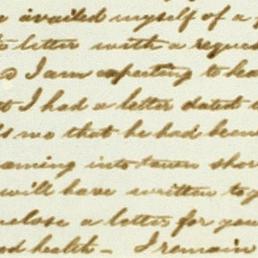 e availed myself of a
letter with a reques
I am expecting to hea
I had a letter dated
me that he had been
coming into town shor
will have written to y
enclose a letter for you
od health - I remain